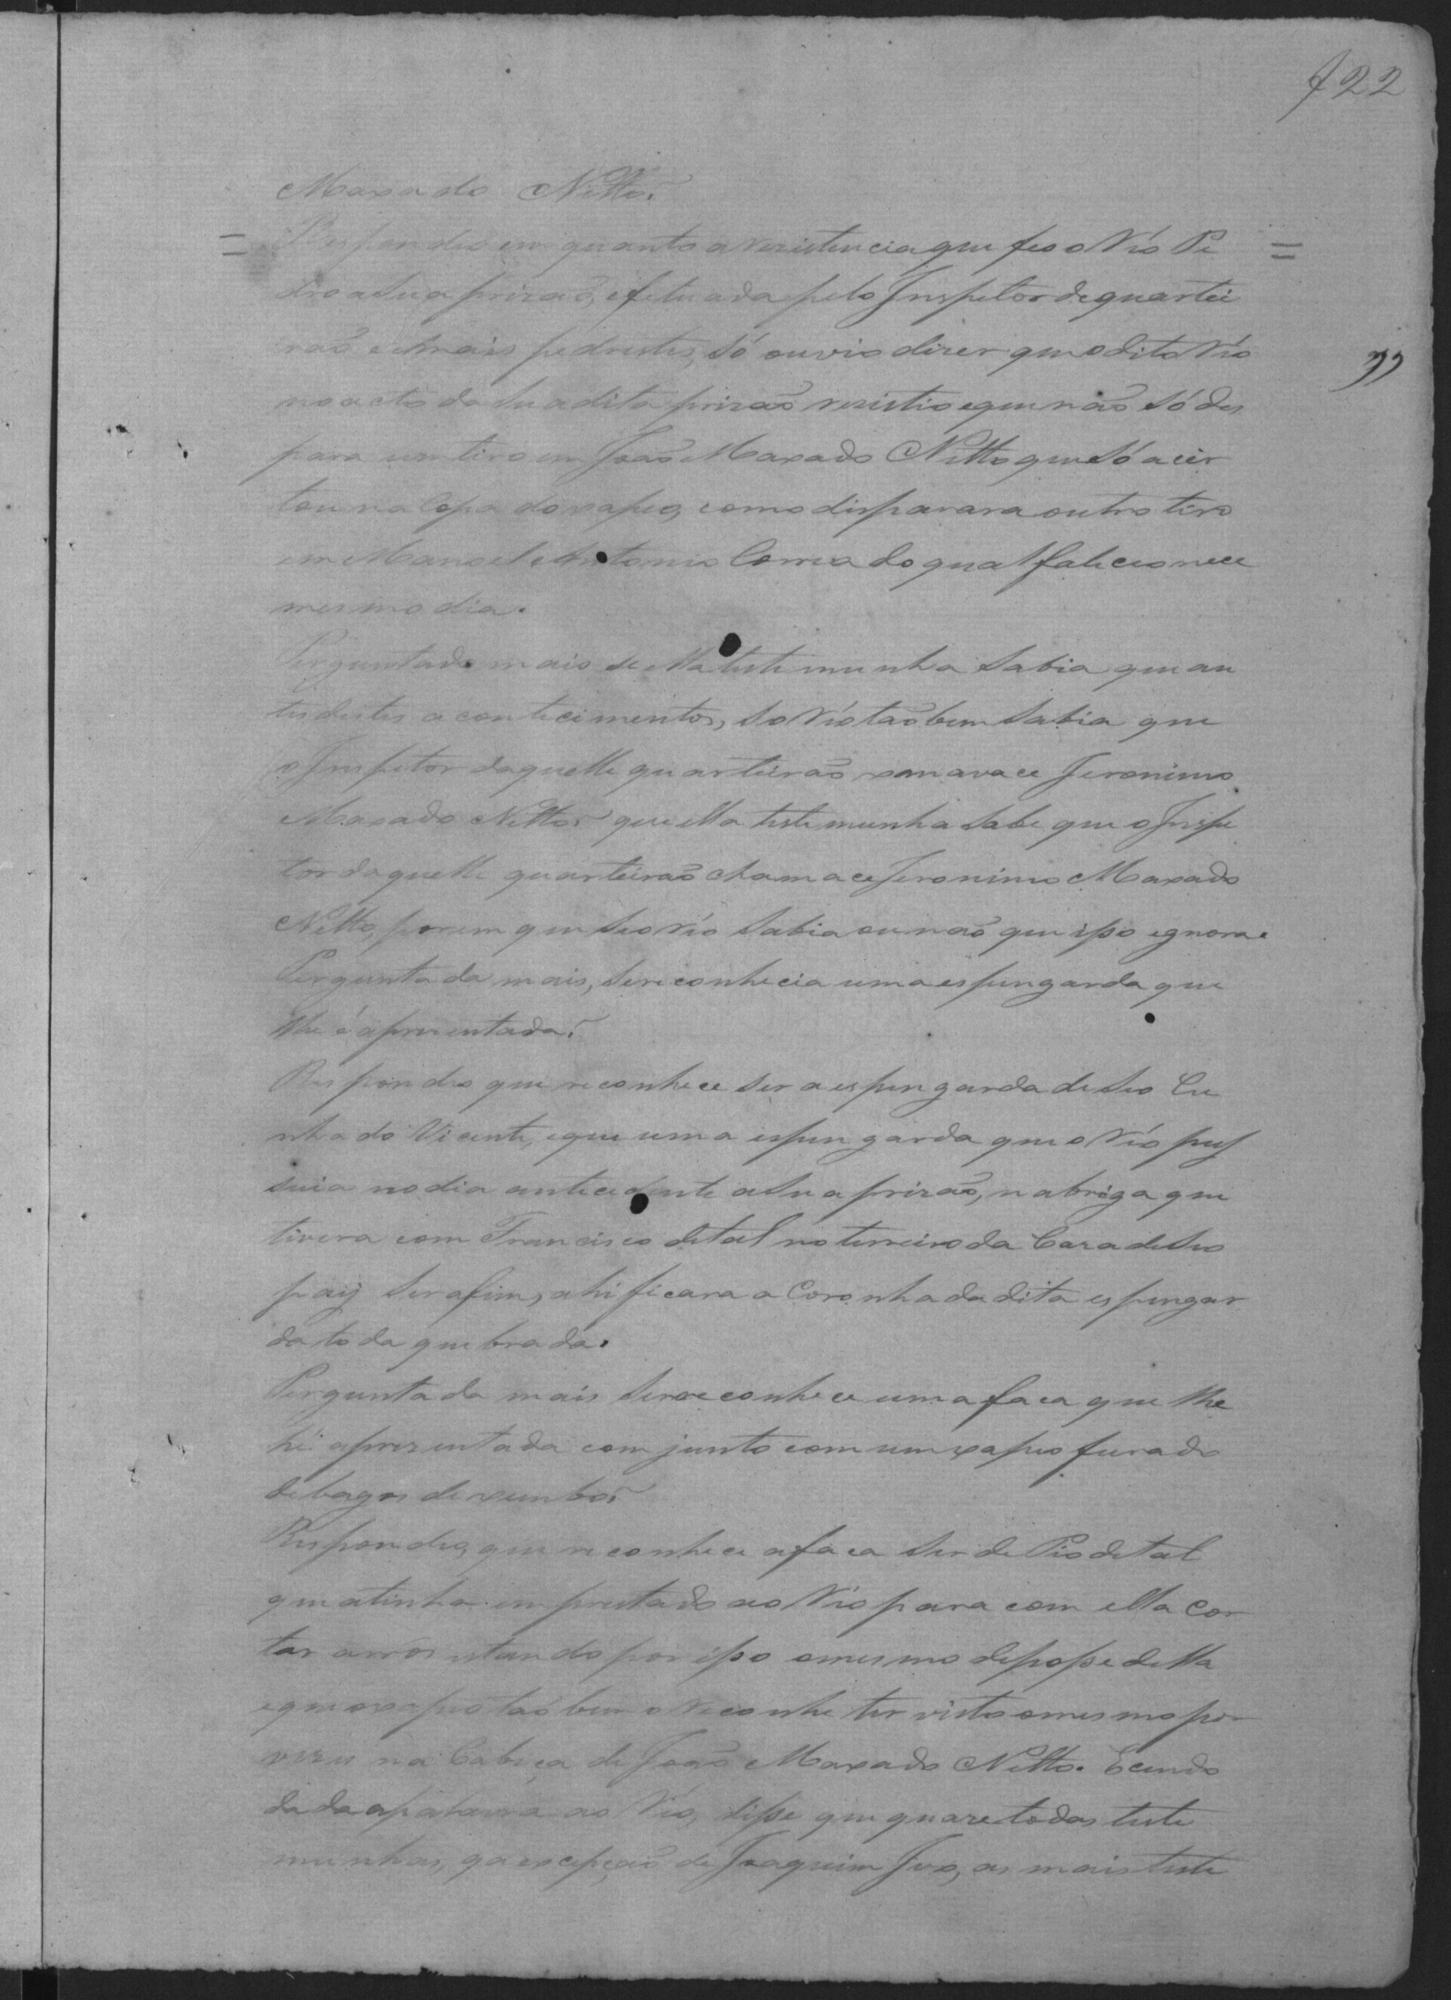 122
Maxado Netto?
= Respondeo em quanto a rezistencia que fes o Réo Pe =
dro a sua prizaõ, efetuada pelo Inspetor de quartei
raõ e mais pedrestes, só ouvio dizer que o dito Réo
no acto da sua dita prizaõ rezistio e que naõ só des
para um tiro em Joaõ Maxado Netto que só acer
tou na Copa do xapeo, como disparara outro tiro
em Manoel Antonio Correa do qual faliceo nece
mesmo dia.
Perguntado mais se ella testimunha sabia que an
tes destes acontecimentos, so Réo taõbem sabia que
o Inspetor daquelle quarteiraõ xamavace Jeronimo
Maxado Netto? que ella testemunha sabe que o Inspe
tor daquelle quarteiraõ chamace Jeronimo Maxado
Netto, porem que se o réo sabia ou naõ que ipso egnora.
Pergunta da mais, se reconhecia uma espengarda que
lhe é aprezentada?
Respondeo que reconhece ser a espengarda de seo Cu
nhado Vicente, e que uma espengarda que o Réo pus
suia no dia antecedente a sua prizaõ, na briga que
tivera com Francisco de tal no terreiro da Caza de seo
pay Serafim, ahi ficara a Coronha da dita espengar
da toda quebrada.
Pergunta da mais se reconhece uma faca que lhe
hé aprezentada com junto com um xapeo furado
de bagos de xumbo?
Respondeo, que reconhece a faca ser de Pio de tal
que a tinha emprestado ao Réo para com ella Cor
tar arros estando por ipso o mesmo de pose della
e que o xapeo taõ bem o reconhe ter visto o mesmo por
vezes na Cabeça de Joaõ Maxado Netto. E cendo
dada a palavra ao Réo, dipse que quaze todas teste
munhas, a excepçaõ de Joaquim Jose, as mais teste